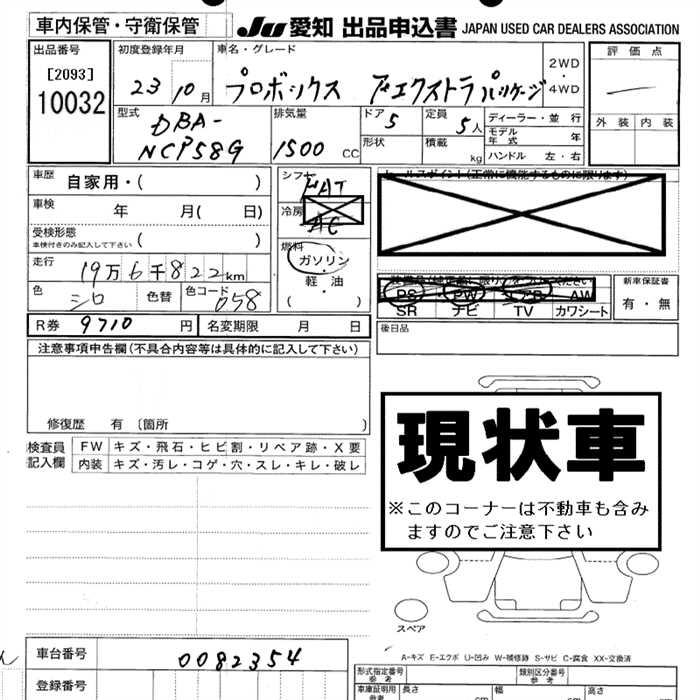 車内保管・守衛保管
JU 愛知 出品申込書 JAPAN USED CAR DEALERS ASSOCIATION
出品番号
[2093]
10032
初度登録年月
23 10月
車名・グレード
プロボックス Fエクストラパッケージ
2WD
・
4WD
評価点
外装 内装
型式
DBA-
NCP58G
排気量
1500 CC
ドア
5
形状
定員
5人
積載
kg
ディーラー・並行
モデル年式 年
ハンドル 左・右
車歴
自家用・( )
車検
年 月( 日)
受検形態
車検付きのみ記入して下さい
( )
走行
19万6千822km
色
シロ
色替
色コード
058
シフト
FAT
冷房
AC
燃料
ガソリン
・
軽油
( )
セールスポイント(正常に機能するものに限ります)
PS PW エアB AW
SR ナビ TV カワシート
新車保証書
有・無
後日品
R券 9710 円
名変期限 月 日
注意事項申告欄(不具合内容等は具体的に記入して下さい)
修復歴 有 〔箇所 〕
検査員
記入欄
FW キズ・飛石・ヒビ割・リペア跡・X要
内装 キズ・汚レ・コゲ・穴・スレ・キレ・破レ
現状車
※このコーナーは不動車も含み
ますのでご注意下さい
スペア
A-キズ E-エクボ U-凹み W-補修跡 S-サビ C-腐食 XX-交換済
車台番号
0082354
登録番号
形式指定番号
参考
類別区分番号
参考
車庫証明用
参考
長さ
cm
幅
cm
高さ
cm